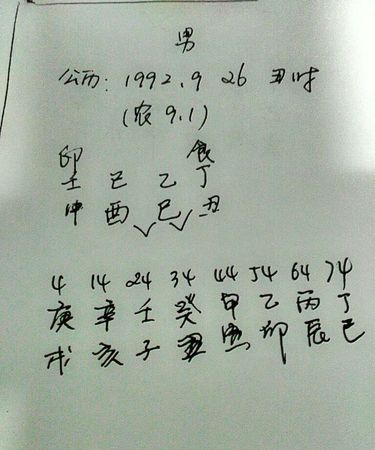 男
公历: 1992.9 26 丑时
(农 9.1)
印 食
壬 己 乙 丁
申 酉 巳 丑
4 14 24 34 44 54 64 74
庚 辛 壬 癸 甲 乙 丙 丁
戌 亥 子 丑 寅 卯 辰 巳